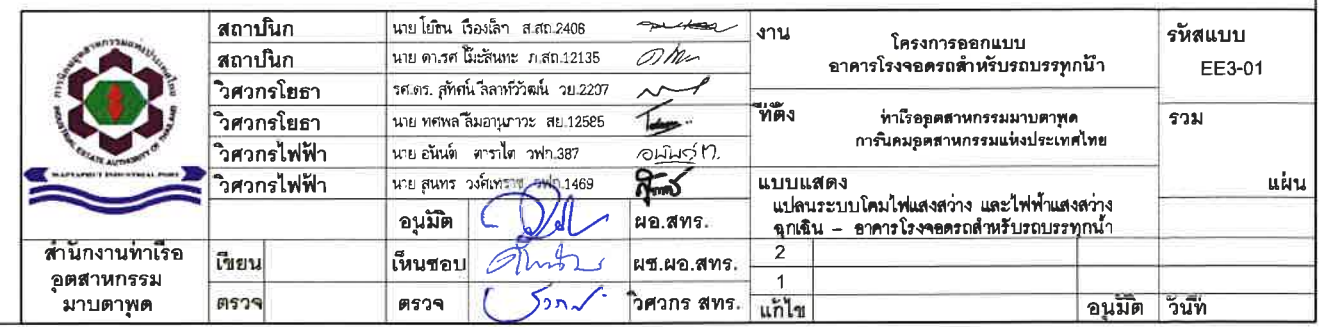 การนิคมอุตสาหกรรมแห่งประเทศไทย
INDUSTRIAL ESTATE AUTHORITY OF THAILAND
MAPTAPHUT INDUSTRIAL PORT
สำนักงานท่าเรือ
อุตสาหกรรม
มาบตาพุด
สถาปนิก นาย โยธิน เรืองเล้า ส.สถ.2406
สถาปนิก นาย ดา.รศ โม๊ะสันทะ ภ.สถ.12135
วิศวกรโยธา รศ.ดร. สุทัศน์ ลีลาทวีวัฒน์ วย.2207
วิศวกรโยธา นาย ทศพล ลิมอานุภาวะ สย.12585
วิศวกรไฟฟ้า นาย อนันต์ ดาราไต วฟก.387
วิศวกรไฟฟ้า นาย สุนทร วงศ์เทราช วฟก.1469
อนุมัติ ผอ.สทร.
เขียน เห็นชอบ ผช.ผอ.สทร.
ตรวจ ตรวจ วิศวกร สทร.
งาน
โครงการออกแบบ
อาคารโรงจอดรถสำหรับรถบรรทุกน้ำ
ที่ตั้ง
ท่าเรืออุตสาหกรรมมาบตาพุด
การนิคมอุตสาหกรรมแห่งประเทศไทย
แบบแสดง
แปลนระบบโคมไฟแสงสว่าง และไฟฟ้าแสงสว่าง
ฉุกเฉิน – อาคารโรงจอดรถสำหรับรถบรรทุกน้ำ
2
1
แก้ไข อนุมัติ วันที่
รหัสแบบ
EE3-01
รวม
แผ่น